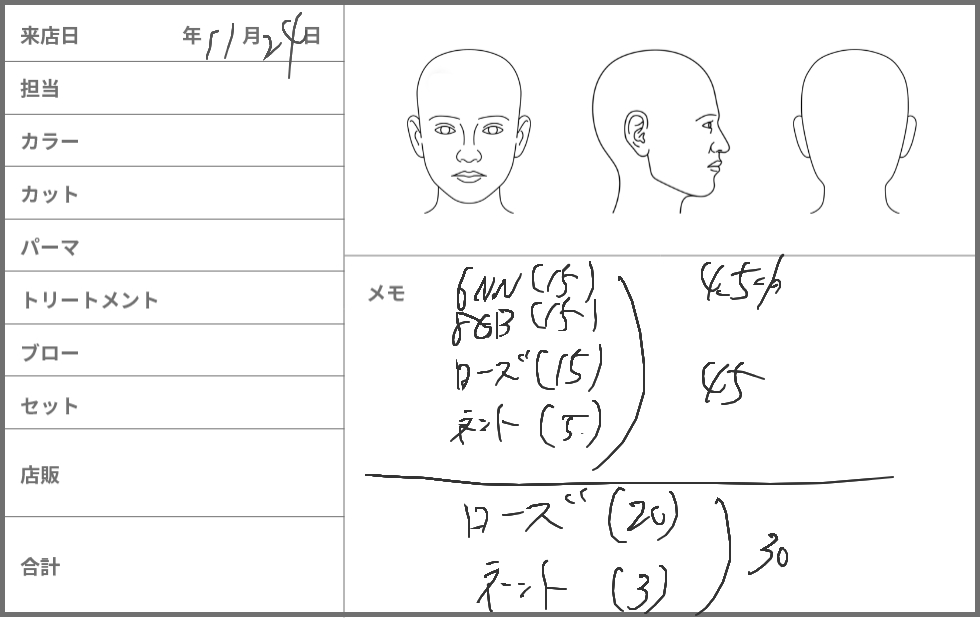 来店日 年 11月24日
担当
カラー
カット
パーマ
トリートメント
ブロー
セット
店販
合計
メモ
6NN (15)
(15)
ローズ (15)
(5)
45
ローズ (20)
(3)
30